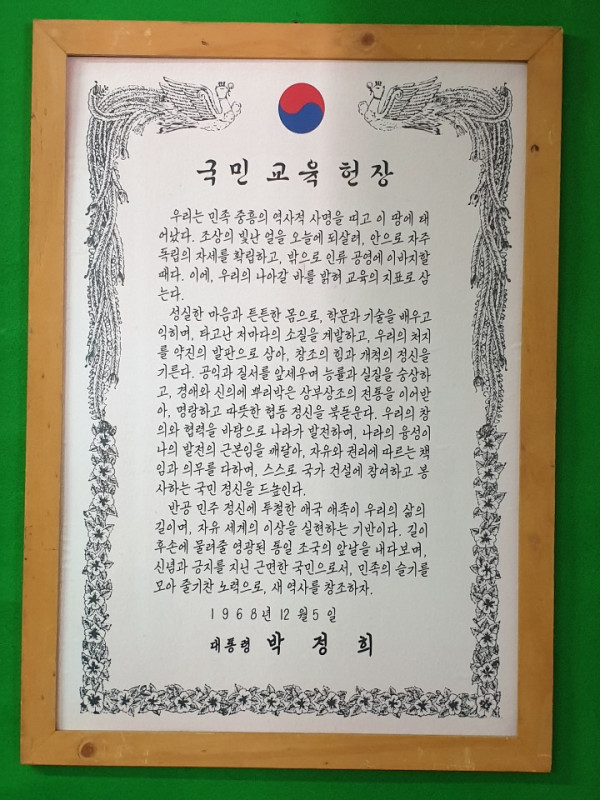 국민교육헌장
우리는 민족 중흥의 역사적 사명을 띠고 이 땅에 태
어났다. 조상의 빛난 얼을 오늘에 되살려, 안으로 자주
독립의 자세를 확립하고, 밖으로 인류 공영에 이바지할
때다. 이에, 우리의 나아갈 바를 밝혀 교육의 지표로 삼
는다.
성실한 마음과 튼튼한 몸으로, 학문과 기술을 배우고
익히며, 타고난 저마다의 소질을 계발하고, 우리의 처지
를 약진의 발판으로 삼아, 창조의 힘과 개척의 정신을
기른다. 공익과 질서를 앞세우며 능률과 실질을 숭상하
고, 경애와 신의에 뿌리박은 상부상조의 전통을 이어받
아, 명랑하고 따뜻한 협동 정신을 북돋운다. 우리의 창
의와 협력을 바탕으로 나라가 발전하며, 나라의 융성이
나의 발전의 근본임을 깨달아, 자유와 권리에 따르는 책
임과 의무를 다하며, 스스로 국가 건설에 참여하고 봉
사하는 국민 정신을 드높인다.
반공 민주 정신에 투철한 애국 애족이 우리의 삶의
길이며, 자유 세계의 이상을 실현하는 기반이다. 길이
후손에 물려줄 영광된 통일 조국의 앞날을 내다보며,
신념과 긍지를 지닌 근면한 국민으로서, 민족의 슬기를
모아 줄기찬 노력으로, 새 역사를 창조하자.
1968년 12월 5일
대통령 박정희